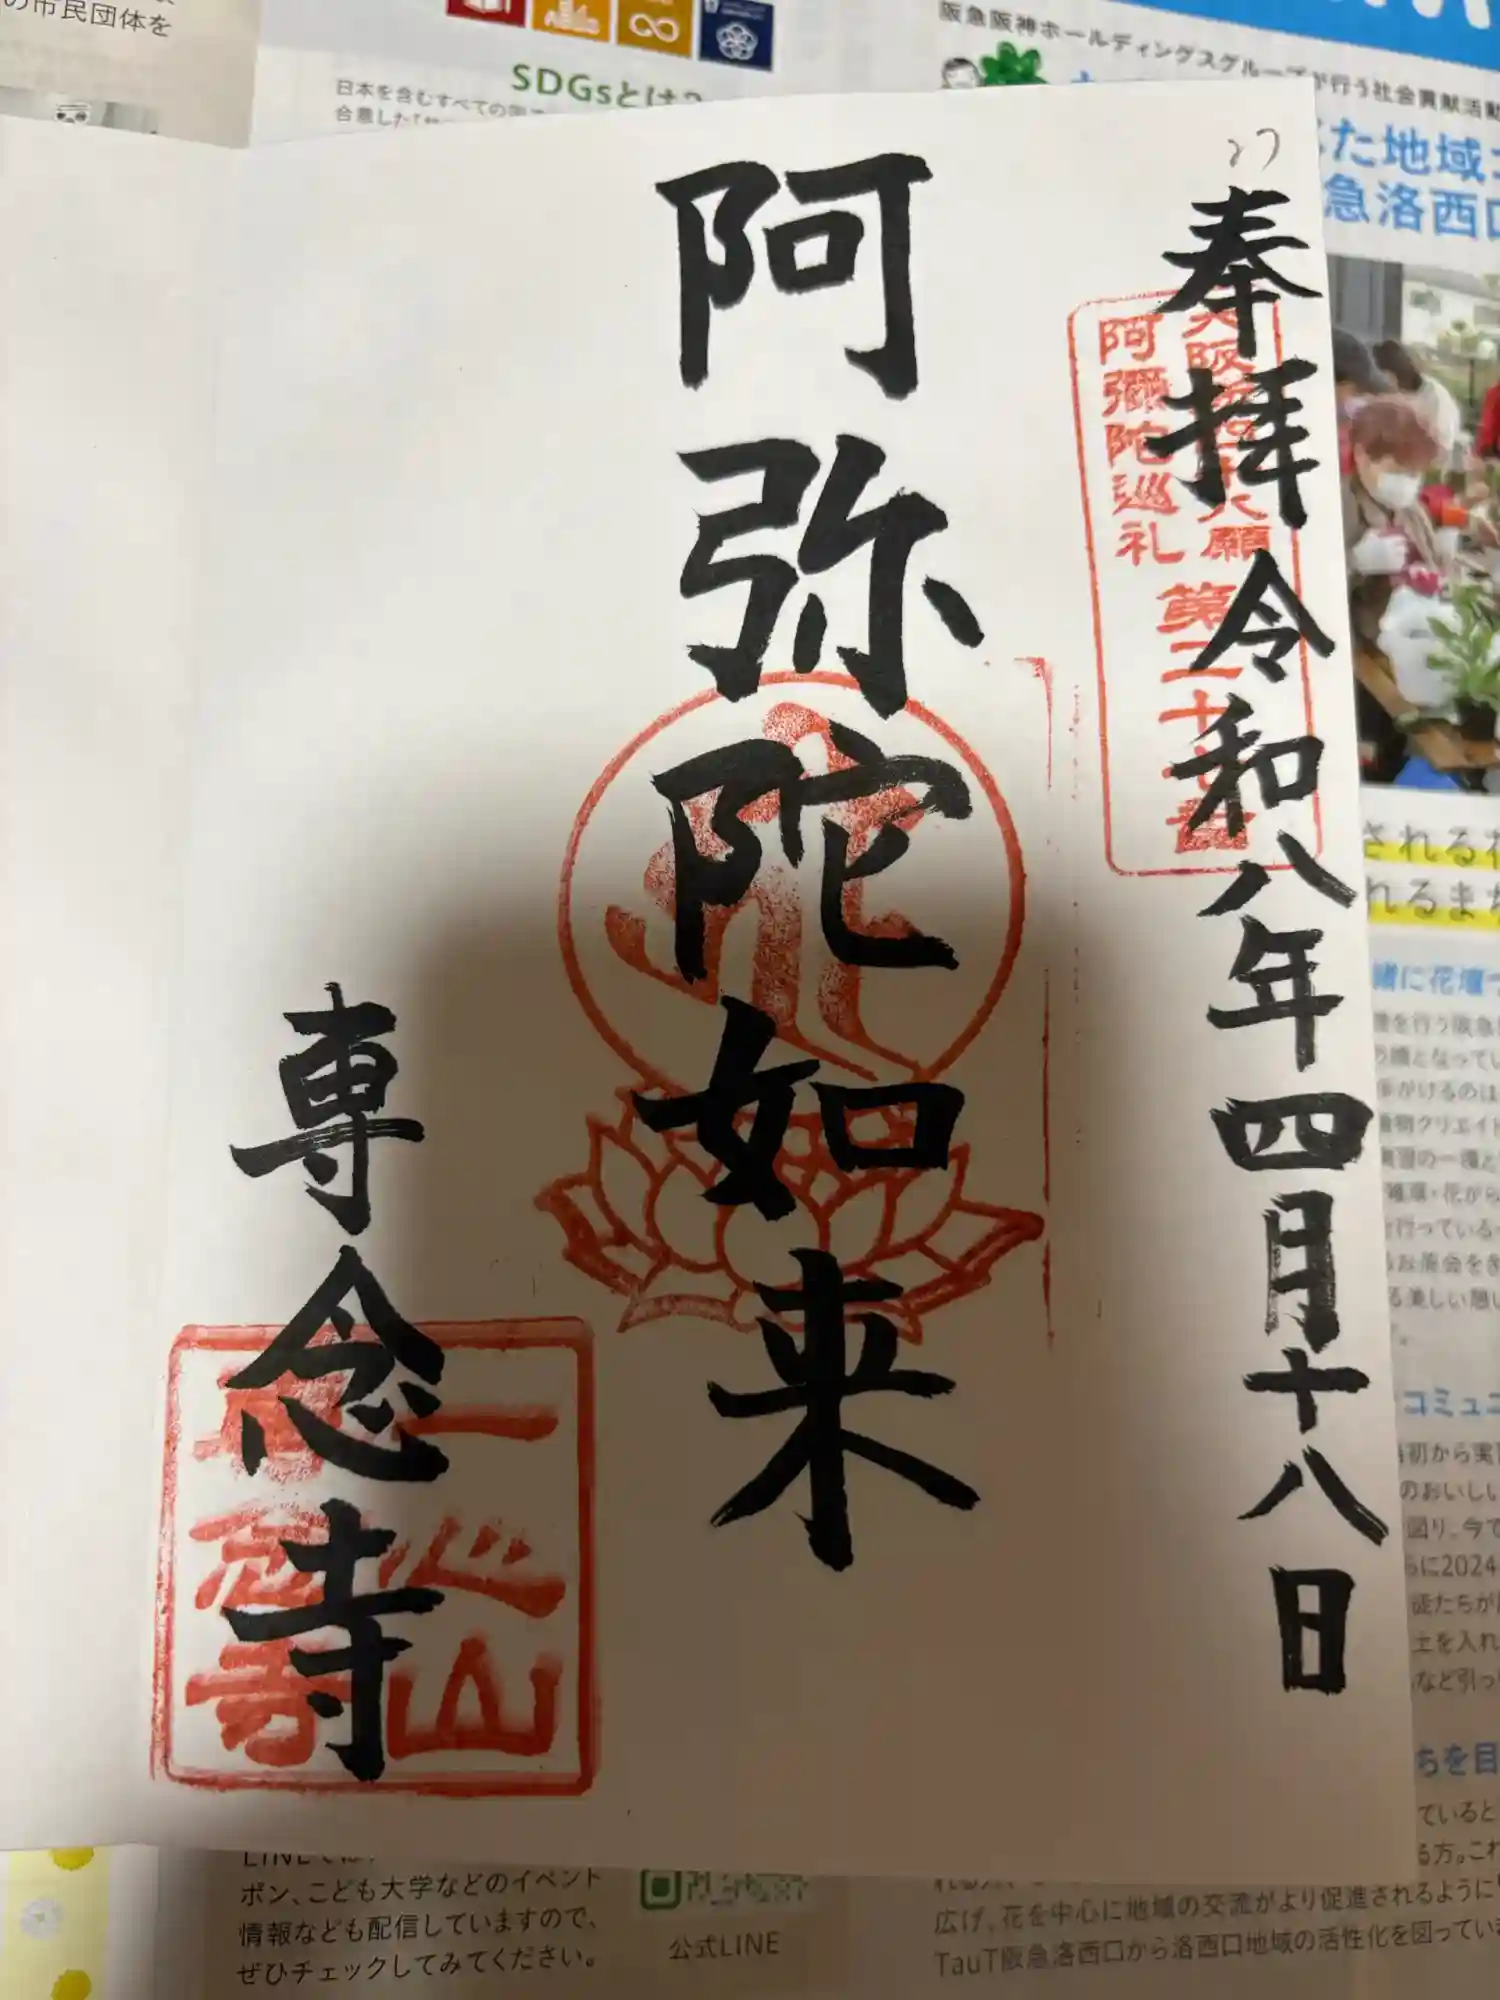 の市民団体を
SDGsとは?
日本を含むすべての
合意した
阪急阪神ホールディングスグループが行う社会貢献活動
た地域
急洛西口
27
奉拝 令和八年四月十八日
大阪新四十八願
阿彌陀巡礼
第二十七番
阿弥陀如来
専念寺
一心山
専念寺
される花
れるまち
緒に花壇
コミュニ
初から実
のおいしい
図り、今で
らに2024
土を入れ
など引っ
ちを目
ていると
る方。これ
ポン、こども大学などのイベント
情報なども配信していますので、
ぜひチェックしてみてください。
公式LINE
広げ、花を中心に地域の交流がより促進されるように
TauT阪急洛西口から洛西口地域の活性化を図ってい